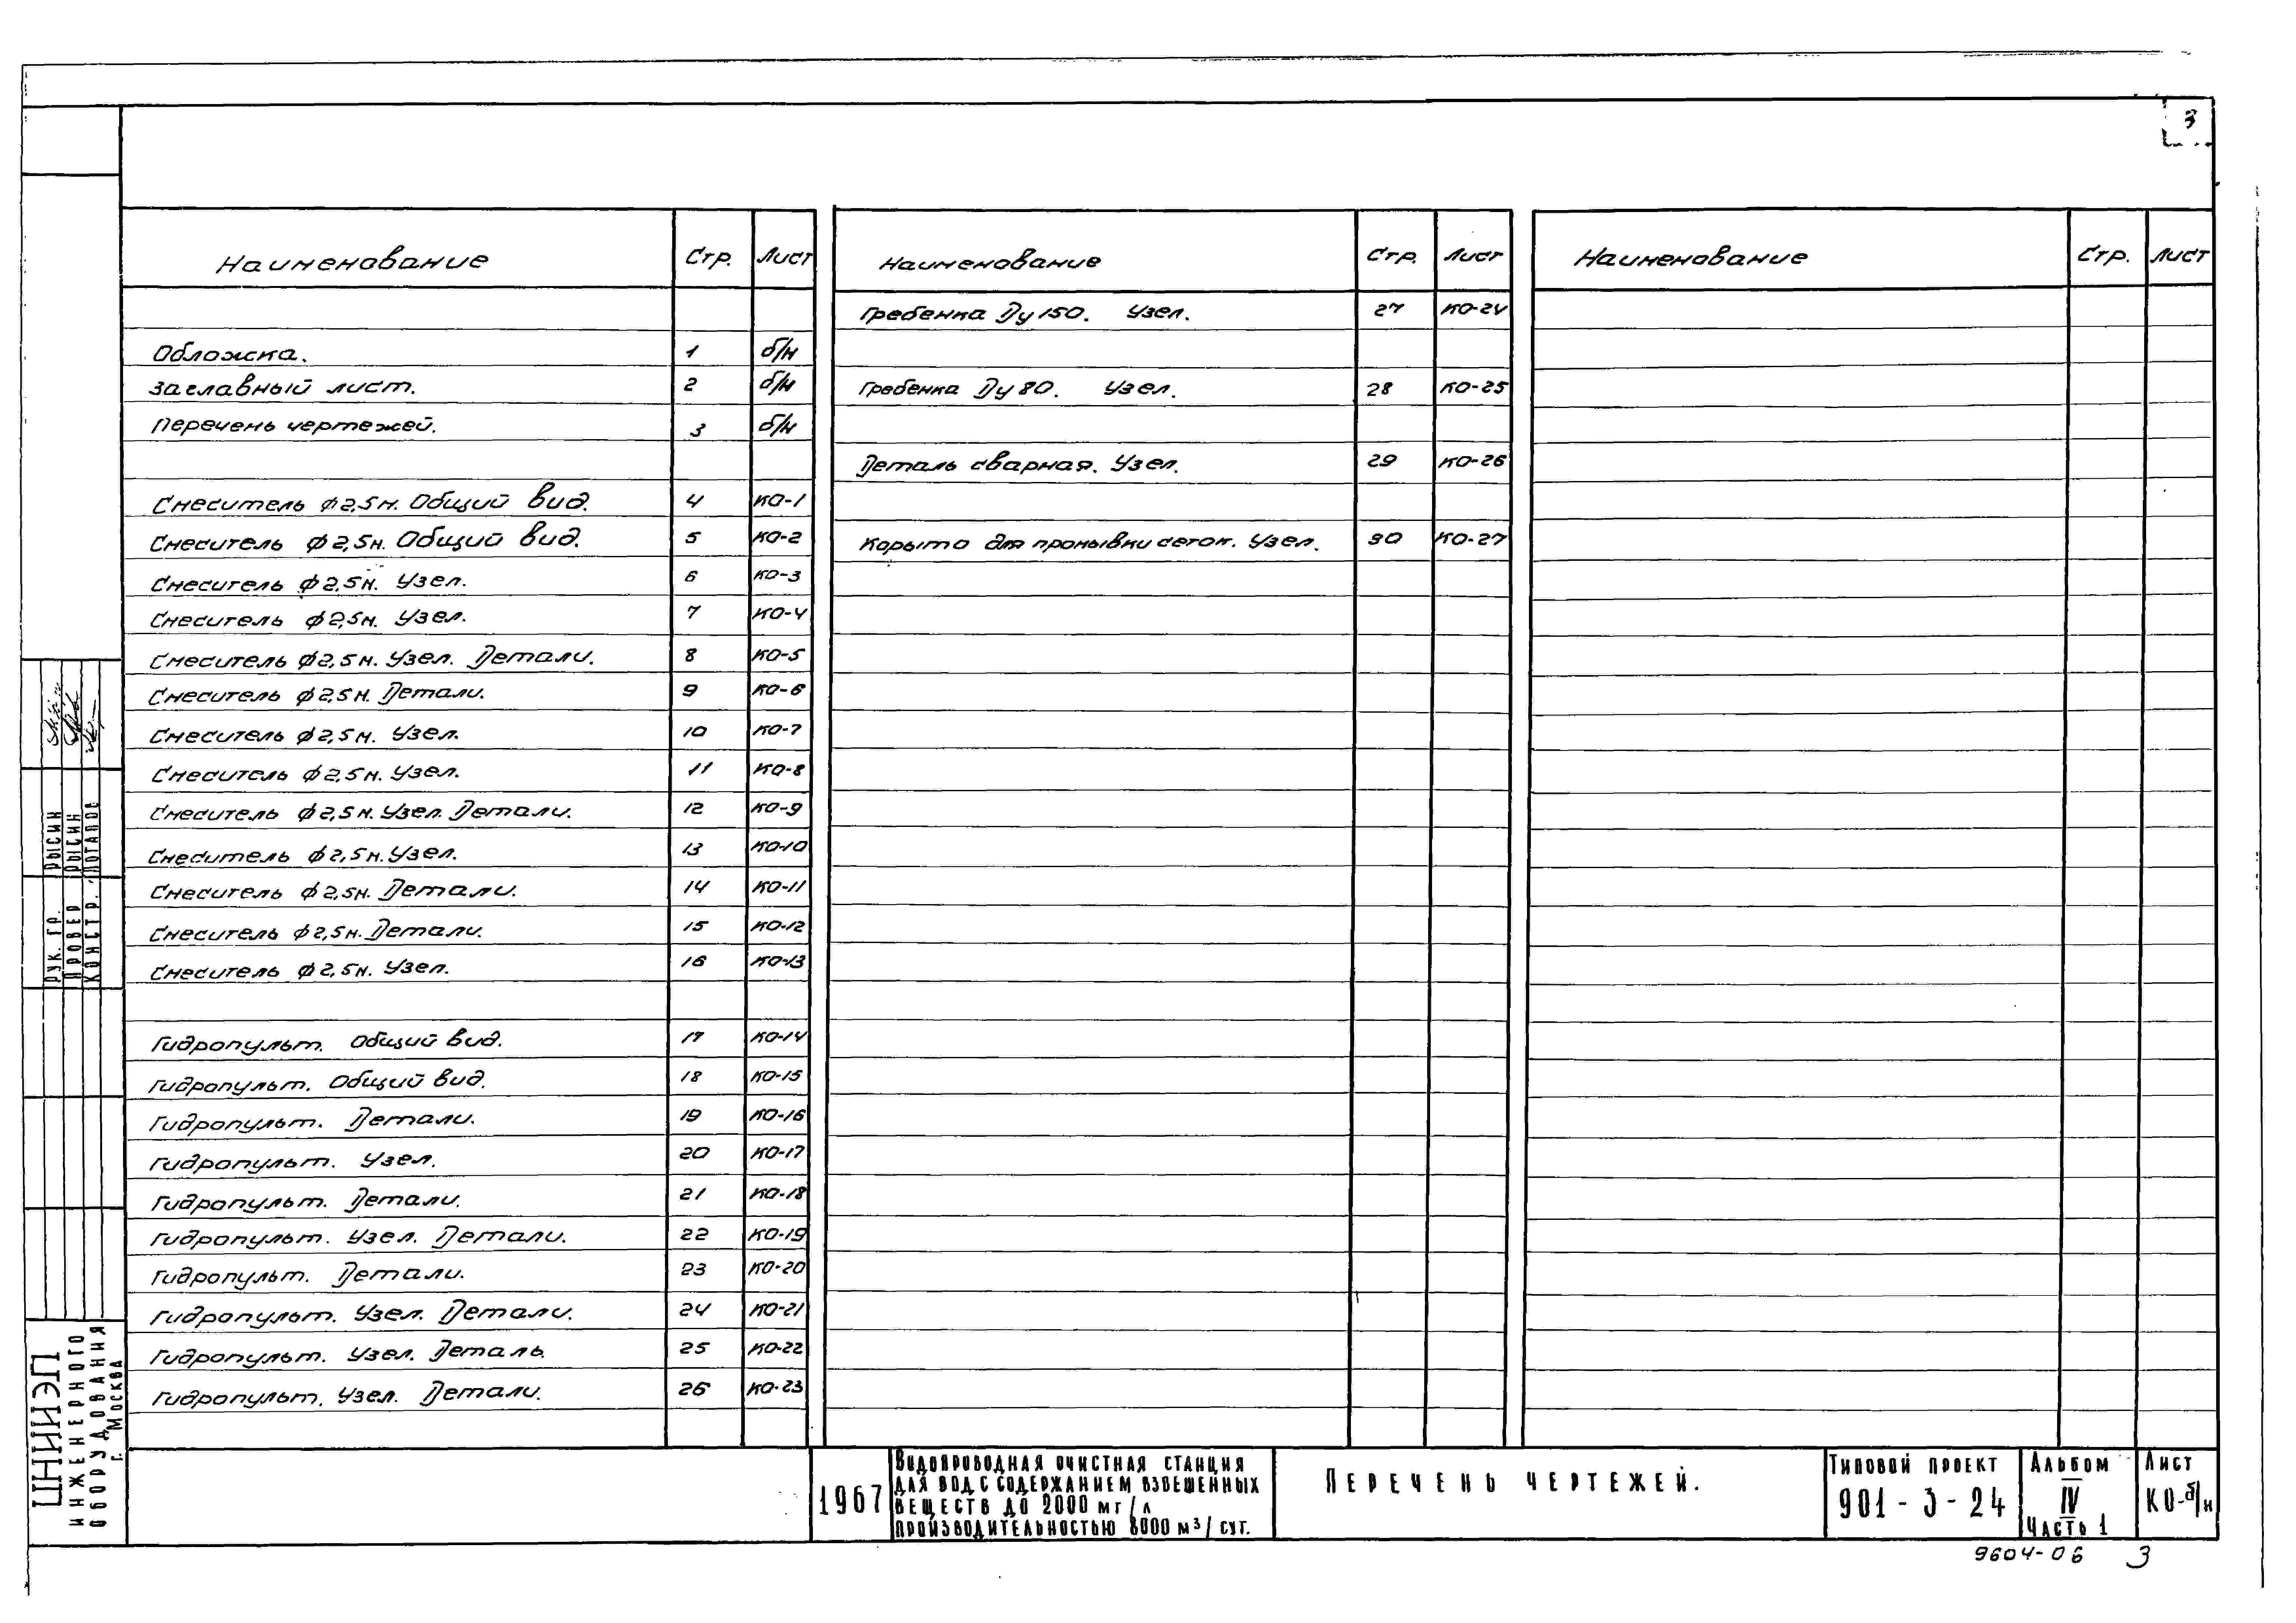 3
Наименование Стр. Лист
Обложка. 1 б/н
Заглавный лист. 2 б/н
Перечень чертежей. 3 б/н
Смеситель ф 2,5м. Общий вид. 4 КО-1
Смеситель ф 2,5м. Общий вид. 5 КО-2
Смеситель ф 2,5м. Узел. 6 КО-3
Смеситель ф 2,5м. Узел. 7 КО-4
Смеситель ф 2,5м. Узел. Детали. 8 КО-5
Смеситель ф 2,5м. Детали. 9 КО-6
Смеситель ф 2,5м. Узел. 10 КО-7
Смеситель ф 2,5м. Узел. 11 КО-8
Смеситель ф 2,5м. Узел. Детали. 12 КО-9
Смеситель ф 2,5м. Узел. 13 КО-10
Смеситель ф 2,5м. Детали. 14 КО-11
Смеситель ф 2,5м. Детали. 15 КО-12
Смеситель ф 2,5м. Узел. 16 КО-13
Гидропульт. Общий вид. 17 КО-14
Гидропульт. Общий вид. 18 КО-15
Гидропульт. Детали. 19 КО-16
Гидропульт. Узел. 20 КО-17
Гидропульт. Детали. 21 КО-18
Гидропульт. Узел. Детали. 22 КО-19
Гидропульт. Детали. 23 КО-20
Гидропульт. Узел. Детали. 24 КО-21
Гидропульт. Узел. Деталь. 25 КО-22
Гидропульт. Узел. Детали. 26 КО-23
Наименование Стр. Лист
Гребенка Ду 150. Узел. 27 КО-24
Гребенка Ду 80. Узел. 28 КО-25
Деталь сварная. Узел. 29 КО-26
Корыто для промывки сеток. Узел. 30 КО-27
Наименование Стр. Лист
Рук. гр. Рысин
Провер Рысин
Констр. Потапов
ЦНИИЭП
инженерного
оборудования
г. Москва
1967
Водопроводная очистная станция
для вод с содержанием взвешенных
веществ до 2000 мг/л
производительностью 8000 м³/сут.
Перечень чертежей.
Типовой проект
901-3-24
Альбом
IV
Часть 1
Лист
КО-б/н
9604-06 3